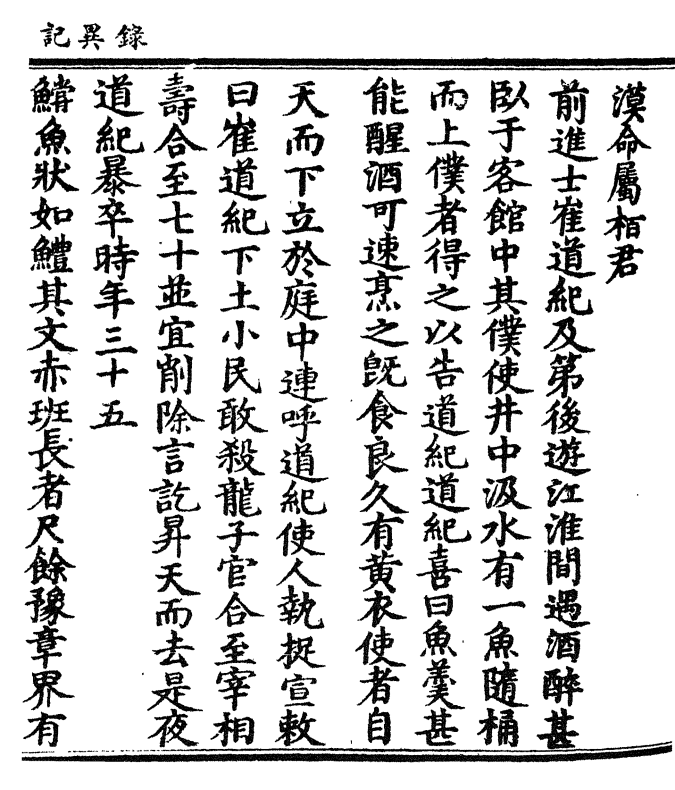 錄異記
漠命屬栢君
前進士崔道紀及第後遊江淮間遇酒醉甚
臥于客館中其僕使井中汲水有一魚隨桶
而上僕者得之以告道紀道紀喜曰魚羹甚
能醒酒可速烹之旣食良久有黄衣使者自
天而下立於庭中連呼道紀使人執捉宣敕
曰崔道紀下土小民敢殺龍子官合至宰相
壽合至七十並宜削除言訖昇天而去是夜
道紀暴卒時年三十五
䱹魚狀如鱧其文赤班長者尺餘豫章界有